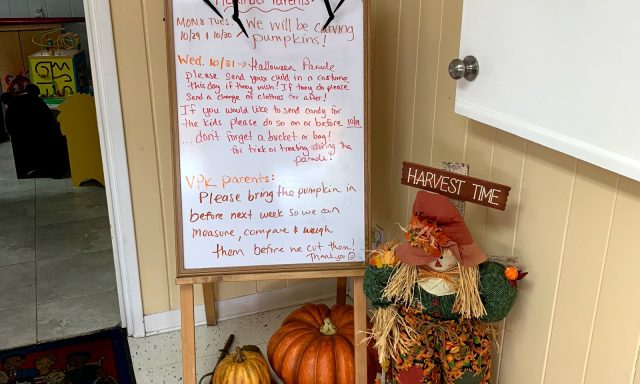 Parents:
MON & TUES:
10/29 & 10/30
We will be carving
pumpkins!
Wed. 10/31 → Halloween Parade
please send your child in a costume
this day if they wish! If they do please
send a change of clothes for after!
If you would like to send candy for
the kids please do so on or before
...don't forget a bucket or bag!
for trick or treating during the
parade!
VPK parents:
Please bring the pumpkin in
before next week so we can
measure, compare & weigh
them before we cut them!
Thank you
HARVEST TIME